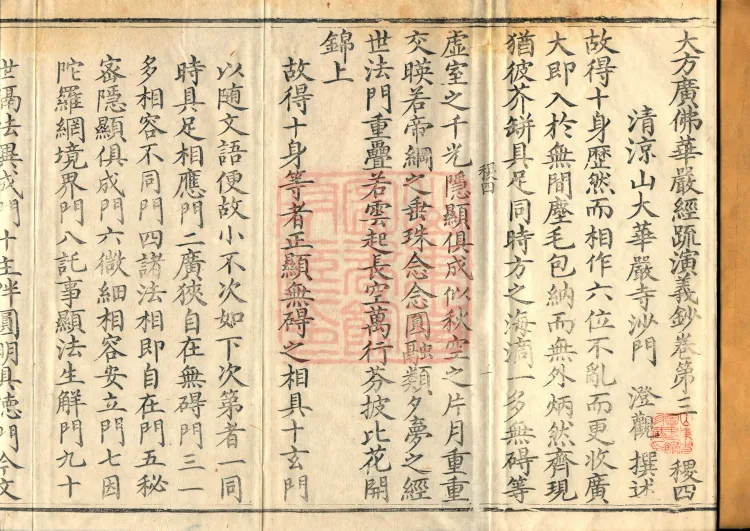 大方廣佛華嚴經疏演義鈔卷第三 稷四
清涼山大華嚴寺沙門 澄觀 撰述
故得十身歷然而相作六位不亂而更收廣
大即入於無間塵毛包納而無外炳然齊現
猶彼芥缾具足同時方之海滴一多無礙等
稷四
虛室之千光隱顯俱成似秋空之片月重重
交暎若帝網之垂珠念念圓融類夕夢之經
世法門重疊若雲起長空萬行芬披比花開
錦上
故得十身等者正顯無礙之相具十玄門
以隨文語便故小不次如下次第者一同
時具足相應門二廣狹自在無碍門三一
多相容不同門四諸法相即自在門五秘
密隱顯俱成門六微細相容安立門七因
陀羅網境界門八託事顯法生解門九十
世隔法異成門十主半圓明具德門今文